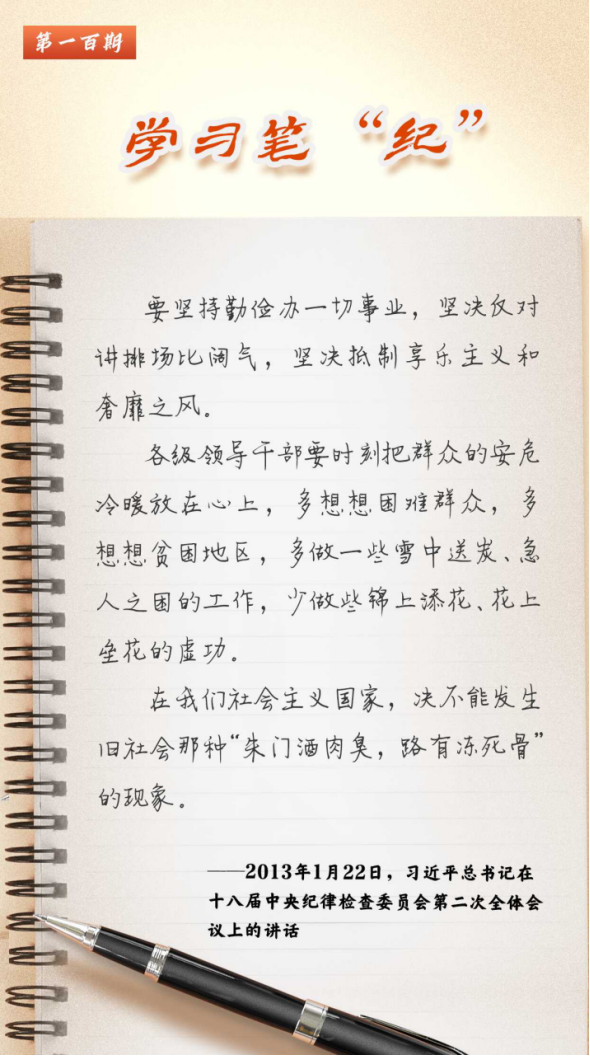 第一百期
学习笔“纪”
要坚持勤俭办一切事业，坚决反对
讲排场比阔气，坚决抵制享乐主义和
奢靡之风。
各级领导干部要时刻把群众的安危
冷暖放在心上，多想想困难群众，多
想想贫困地区，多做一些雪中送炭、急
人之困的工作，少做些锦上添花、花上
垒花的虚功。
在我们社会主义国家，决不能发生
旧社会那种“朱门酒肉臭，路有冻死骨”
的现象。
——2013年1月22日，习近平总书记在
十八届中央纪律检查委员会第二次全体会
议上的讲话